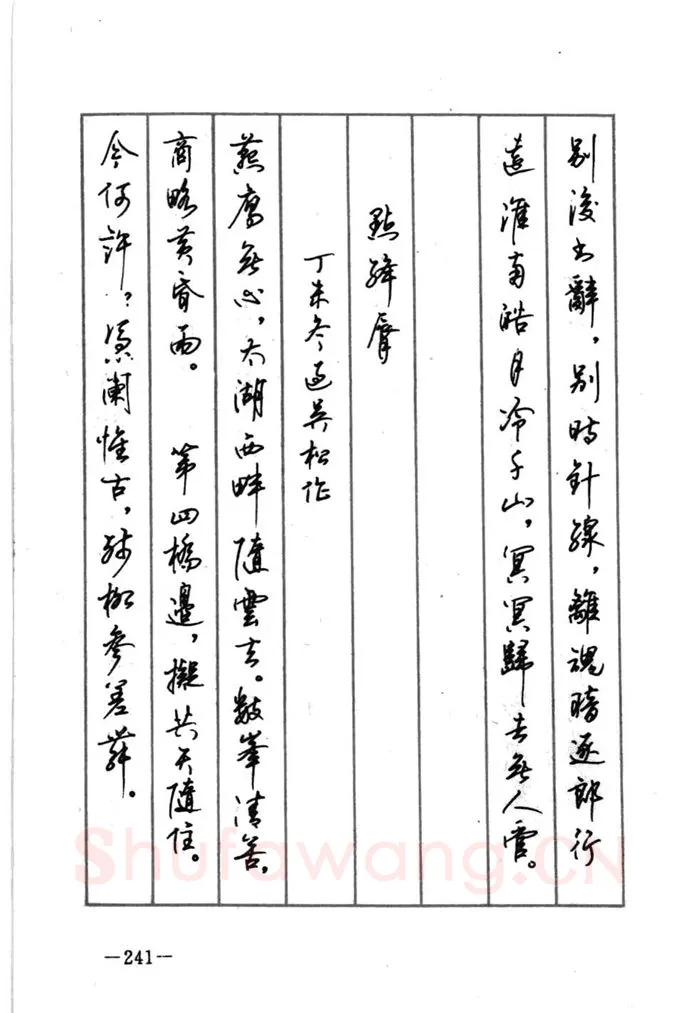 別後書辭，別時針線，離魂暗逐郎行
遠淮南皓月冷千山，冥冥歸去無人管。
點絳脣
丁未冬過吳松作
燕雁無心，太湖西畔隨雲去。數峯清苦，
商略黃昏雨。　第四橋邊，擬共天隨住。
今何許？憑闌懷古，殘柳參差舞。
Shufawang.CN
—241—